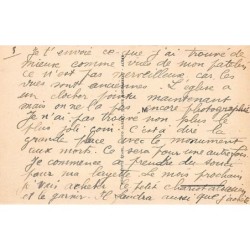 Je t'envoie ce que j'ai trouvé de
mieux comme vues de mon patelin
ce n'est pas merveilleux, car les
vues sont anciennes. L'église a
un clocher pointu maintenant
mais on ne l'a pas encore photographié
Je n'ai pas trouvé non plus le
plus joli coin. C'est à dire la
grande place avec le monument
aux morts. Ce sera pour une autre fois
Je commence à prendre du souci
pour ma layette. Le mois prochain
je vais acheter le petit
et le garnir. Il faudra aussi que j'achète